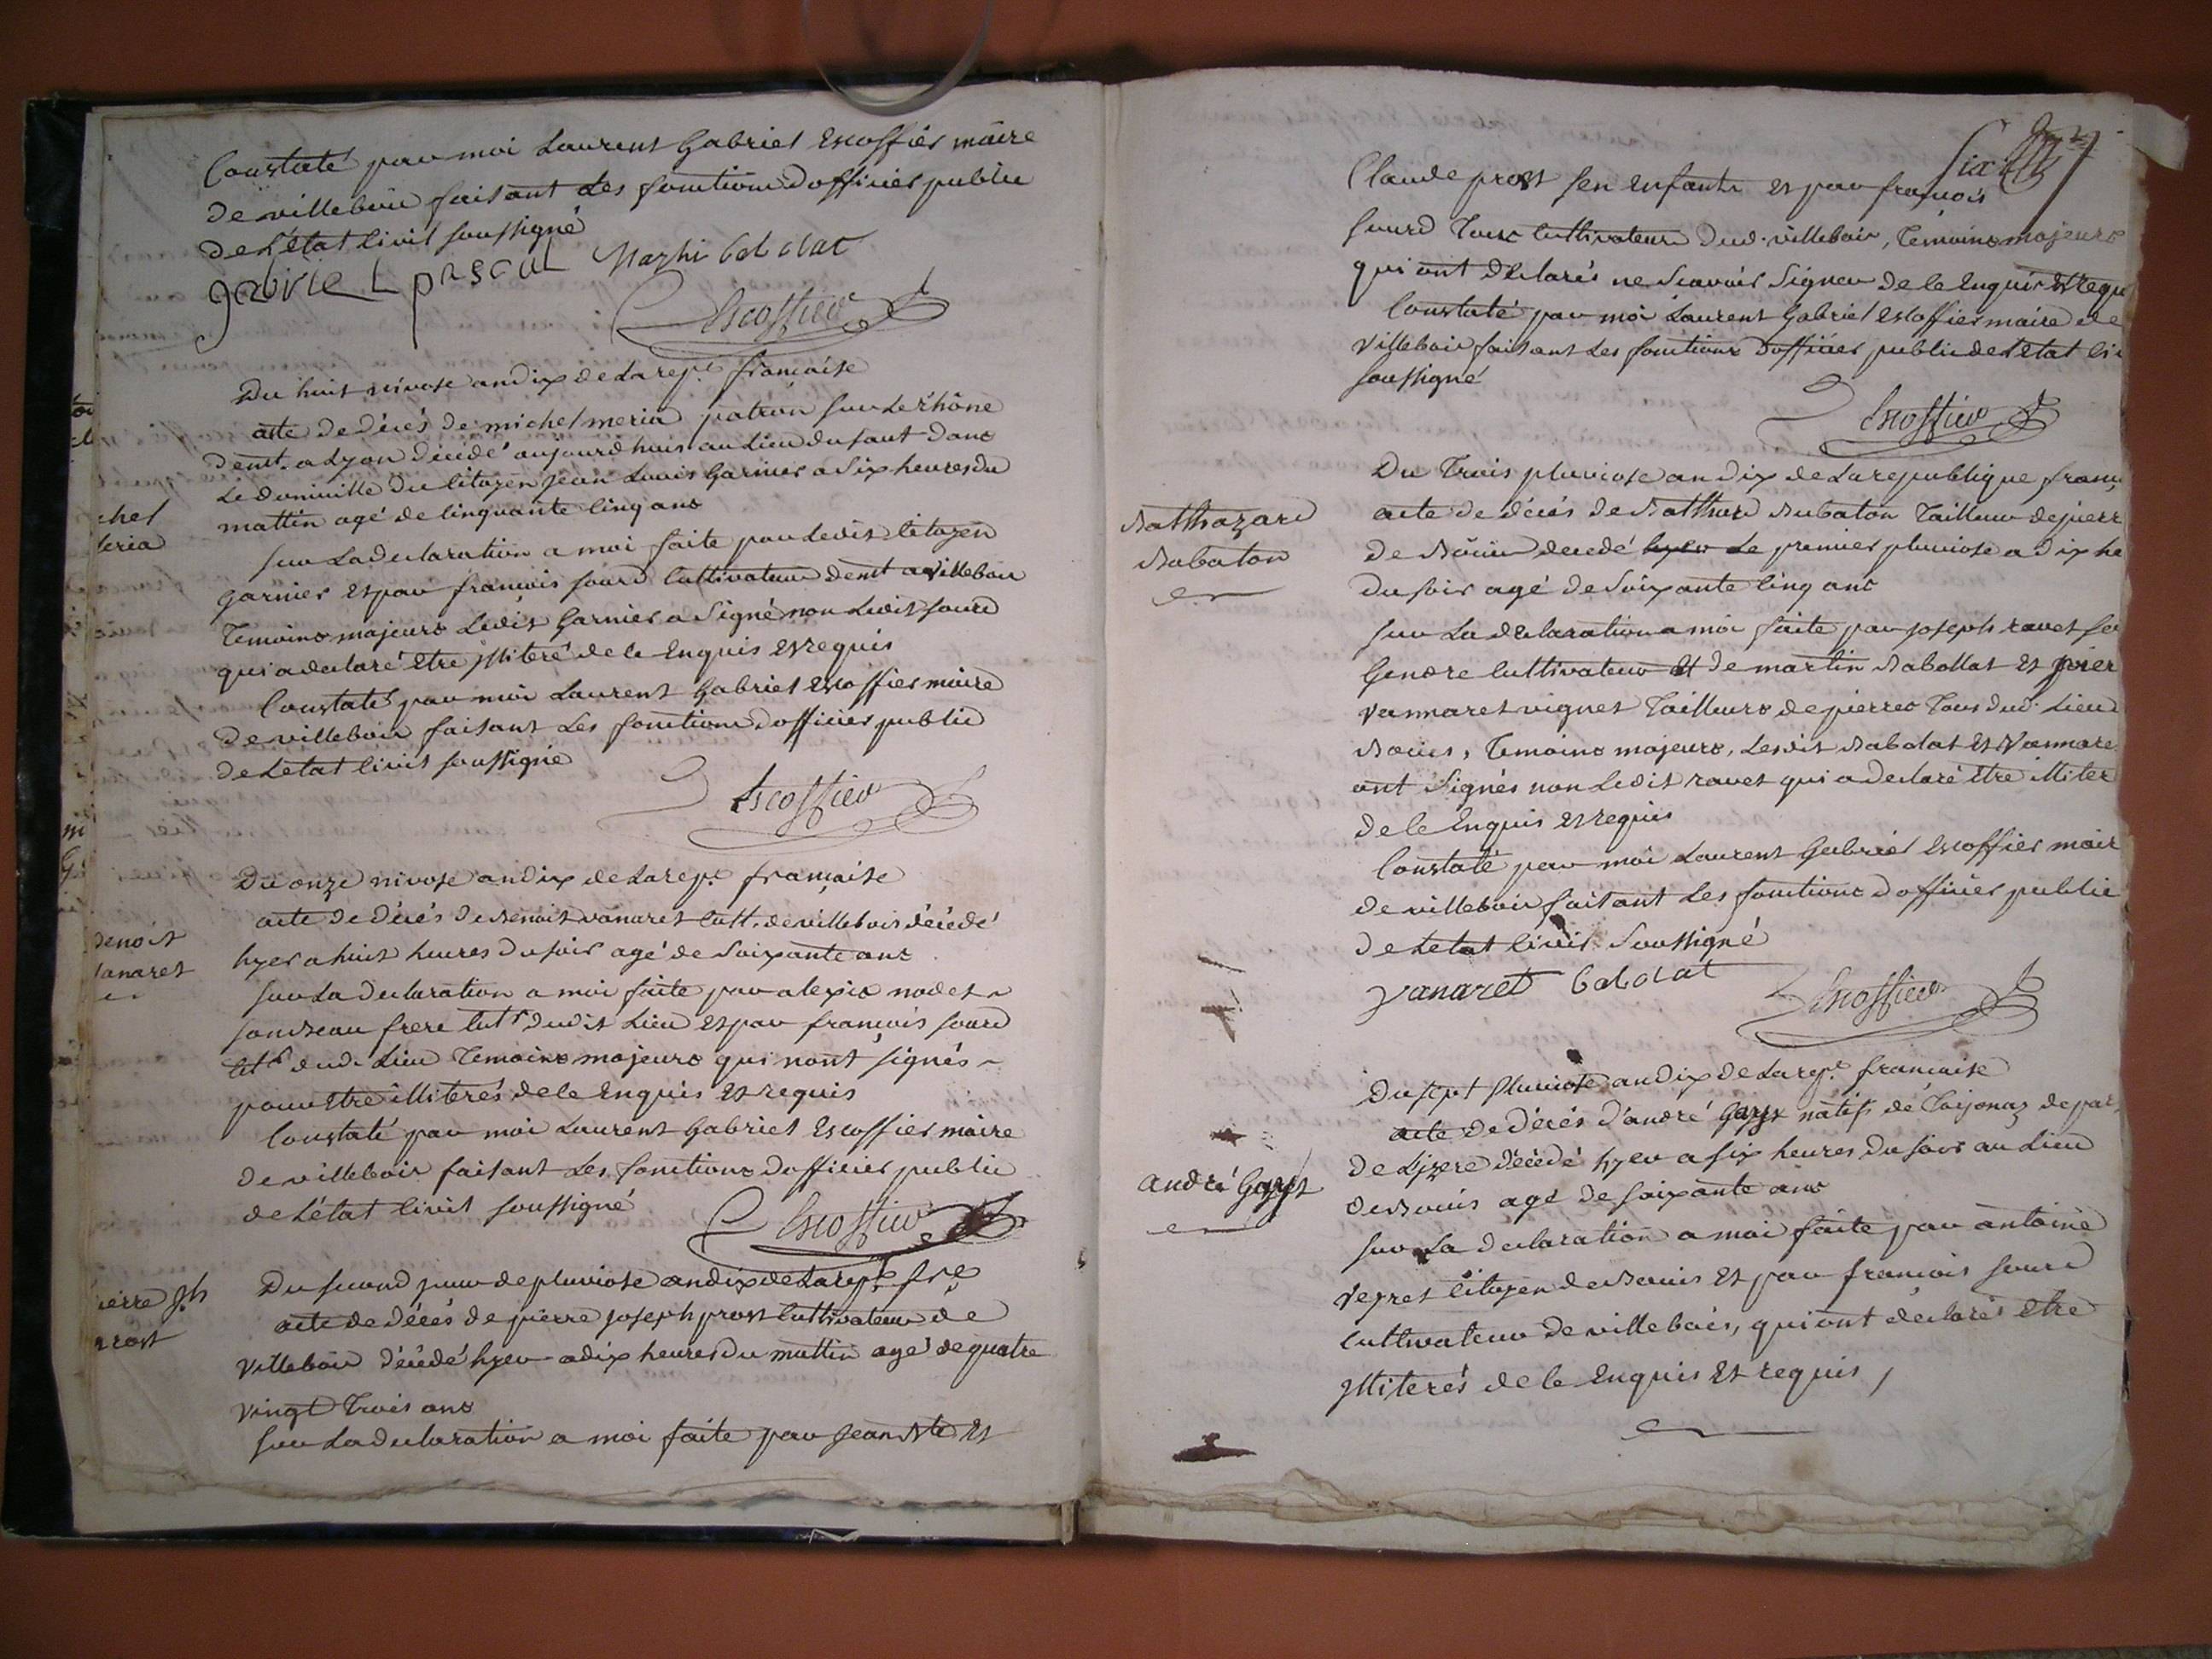 Constaté par moi Laurent Gabriel Escoffier maire
de villebois faisant Les fonctions d'officier public
de L'état Civil soussigné
gabriel pascal babolat
Escoffier
Du huit nivose an dix de La rep.e française
acte de décés de michel meria patron sur Le rhône
demt. a Lyon décédé aujourdhuis au Lieu du saut dans
Le domicille du Citoyen jean Louis Garnier a six heures du
mattin agé de Cinquante Cinq ans
chel
Meria
sur La declaration a moi faite par Ledit Citoyen
garnier et par francois sourd Cultivateur demt a villebois
Temoins majeurs Ledit Garnier a Signé non Ledit sourd
qui a declaré être jlliteré de ce Enquis et requis
Constaté par moi Laurent Gabriel Escoffier maire
de villebois faisant Les fonctions d'officier public
de Letat Civil soussigné
Escoffier
Du onze nivose an dix de La rep.e française
denoit
vanaret
acte de décés de Benoit vanaret Cult. de villebois décédé
hyer a huit heures du soir agé de Soixante ans
sur La declaration a moi faite par alexis nodet
son beau frere Cult.r dudit Lieu et par francois sourd
Cult.r dud. Lieu Temoins majeurs qui nont signés
pour Etre illiterés de ce Enquis et requis
Constaté par moi Laurent Gabriel Escoffier maire
de villebois faisant Les fonctions d'officier public
de L'état Civil soussigné
Escoffier
pierre jh
prost
Du second jour de pluviose an dix de La rep.e fr.e
acte de décés de pierre joseph prost Cultivateur de
villebois décédé hyer a dix heures du mattin agé de quatre
vingt Trois ans
sur La declaration a moi faite par jean Bte et
Six
Claude prost ses enfants et par francois
sourd Tous Cultivateurs dud. villebois, Témoins majeurs
qui ont déclarés ne Scavoir Signer de ce Enquis et requ
Constaté par moi Laurent Gabriel Escoffier maire de
villebois faisant Les fonctions d'officier public de L'état Ci
soussigné
Escoffier
Balthazard
Babaton
Du Trois pluviose an dix de La republique franç
acte de décés de Balthard Babaton Tailleur de pierr
de Bouis decedé hyer Le premier pluviose a dix he
du soir agé de Soixante Cinq ans
sur La declaration a moi faite par joseph ravet so
Gendre Cultivateur et de martin Babollat et pier
vannaret vignet Tailleurs de pierres Tous dud. Lieu
Bouis, Temoins majeurs, Lesdit Babolat et Vannare
ont Signés non Ledit ravet qui a declaré être illiter
de ce Enquis et requis
Constaté par moi Laurent Gabriel Escoffier mair
de villebois faisant Les fonctions d'officier public
de Letat Civil Soussigné
vanaret babolat
Escoffier
andré
Du sept Pluviose an dix de La rep.e française
acte de décés d'andré natif de depar
de Lizere décédé hyer a six heures du soir au Lieu
de Bouis agé de soixante ans
sur La declaration a moi faite par antoine
veyret Citoyen de Bouis et par francois sourd
Cultivateur de villebois, qui ont déclarés être
jlliterés de ce Enquis et requis,